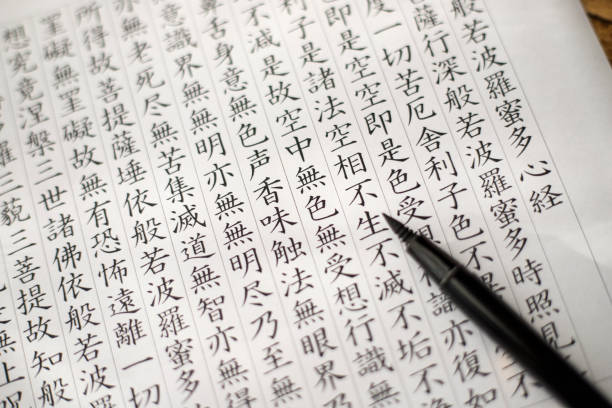 般若波羅蜜多心経
薩行深般若波羅蜜多時照見
度一切苦厄舎利子色不異
即是空空即是色受想識亦復如
利子是諸法空相不生不滅不垢不浄
不減是故空中無色無受想行識無
鼻舌身意無色声香味触法無眼界乃
意識界無無明亦無無明尽乃至無
亦無老死尽無苦集滅道無智亦無得
所得故菩提薩埵依般若波羅蜜多
罣礙無罣礙故無有恐怖遠離一切
想究竟涅槃三世諸佛依般若波
羅三藐三菩提故知般
無上呪